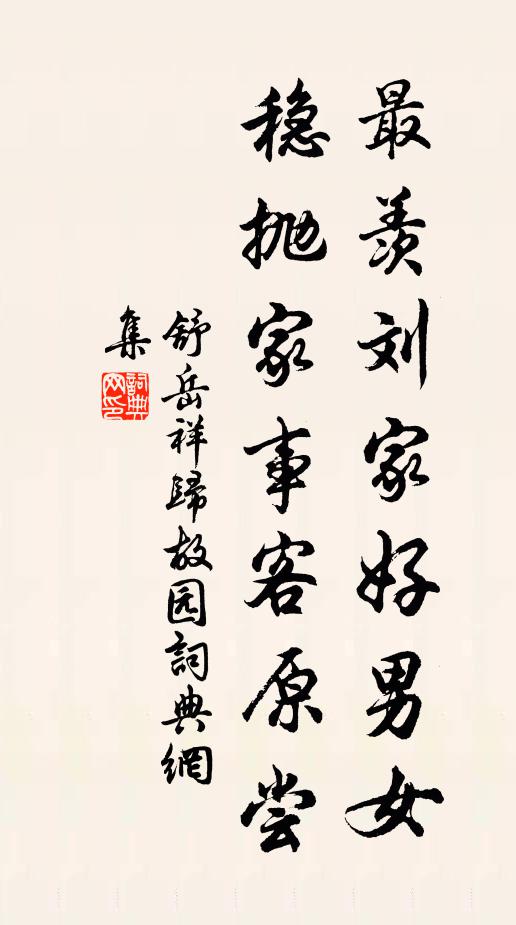 最羡刘家好男女
稳抛家事客原尝
舒岳祥歸故园詞典網
集
詞典网印